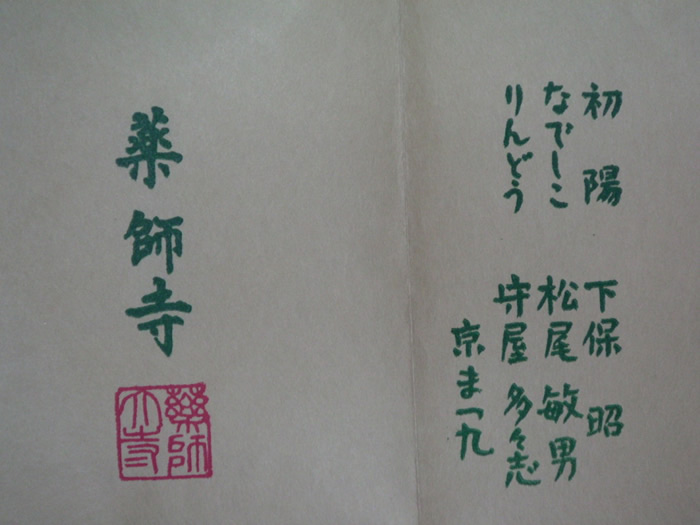 初陽 下保 昭
なでしこ 松尾 敏男
りんどう 守屋 多々志
京まつ九
薬師寺
薬師
大寺